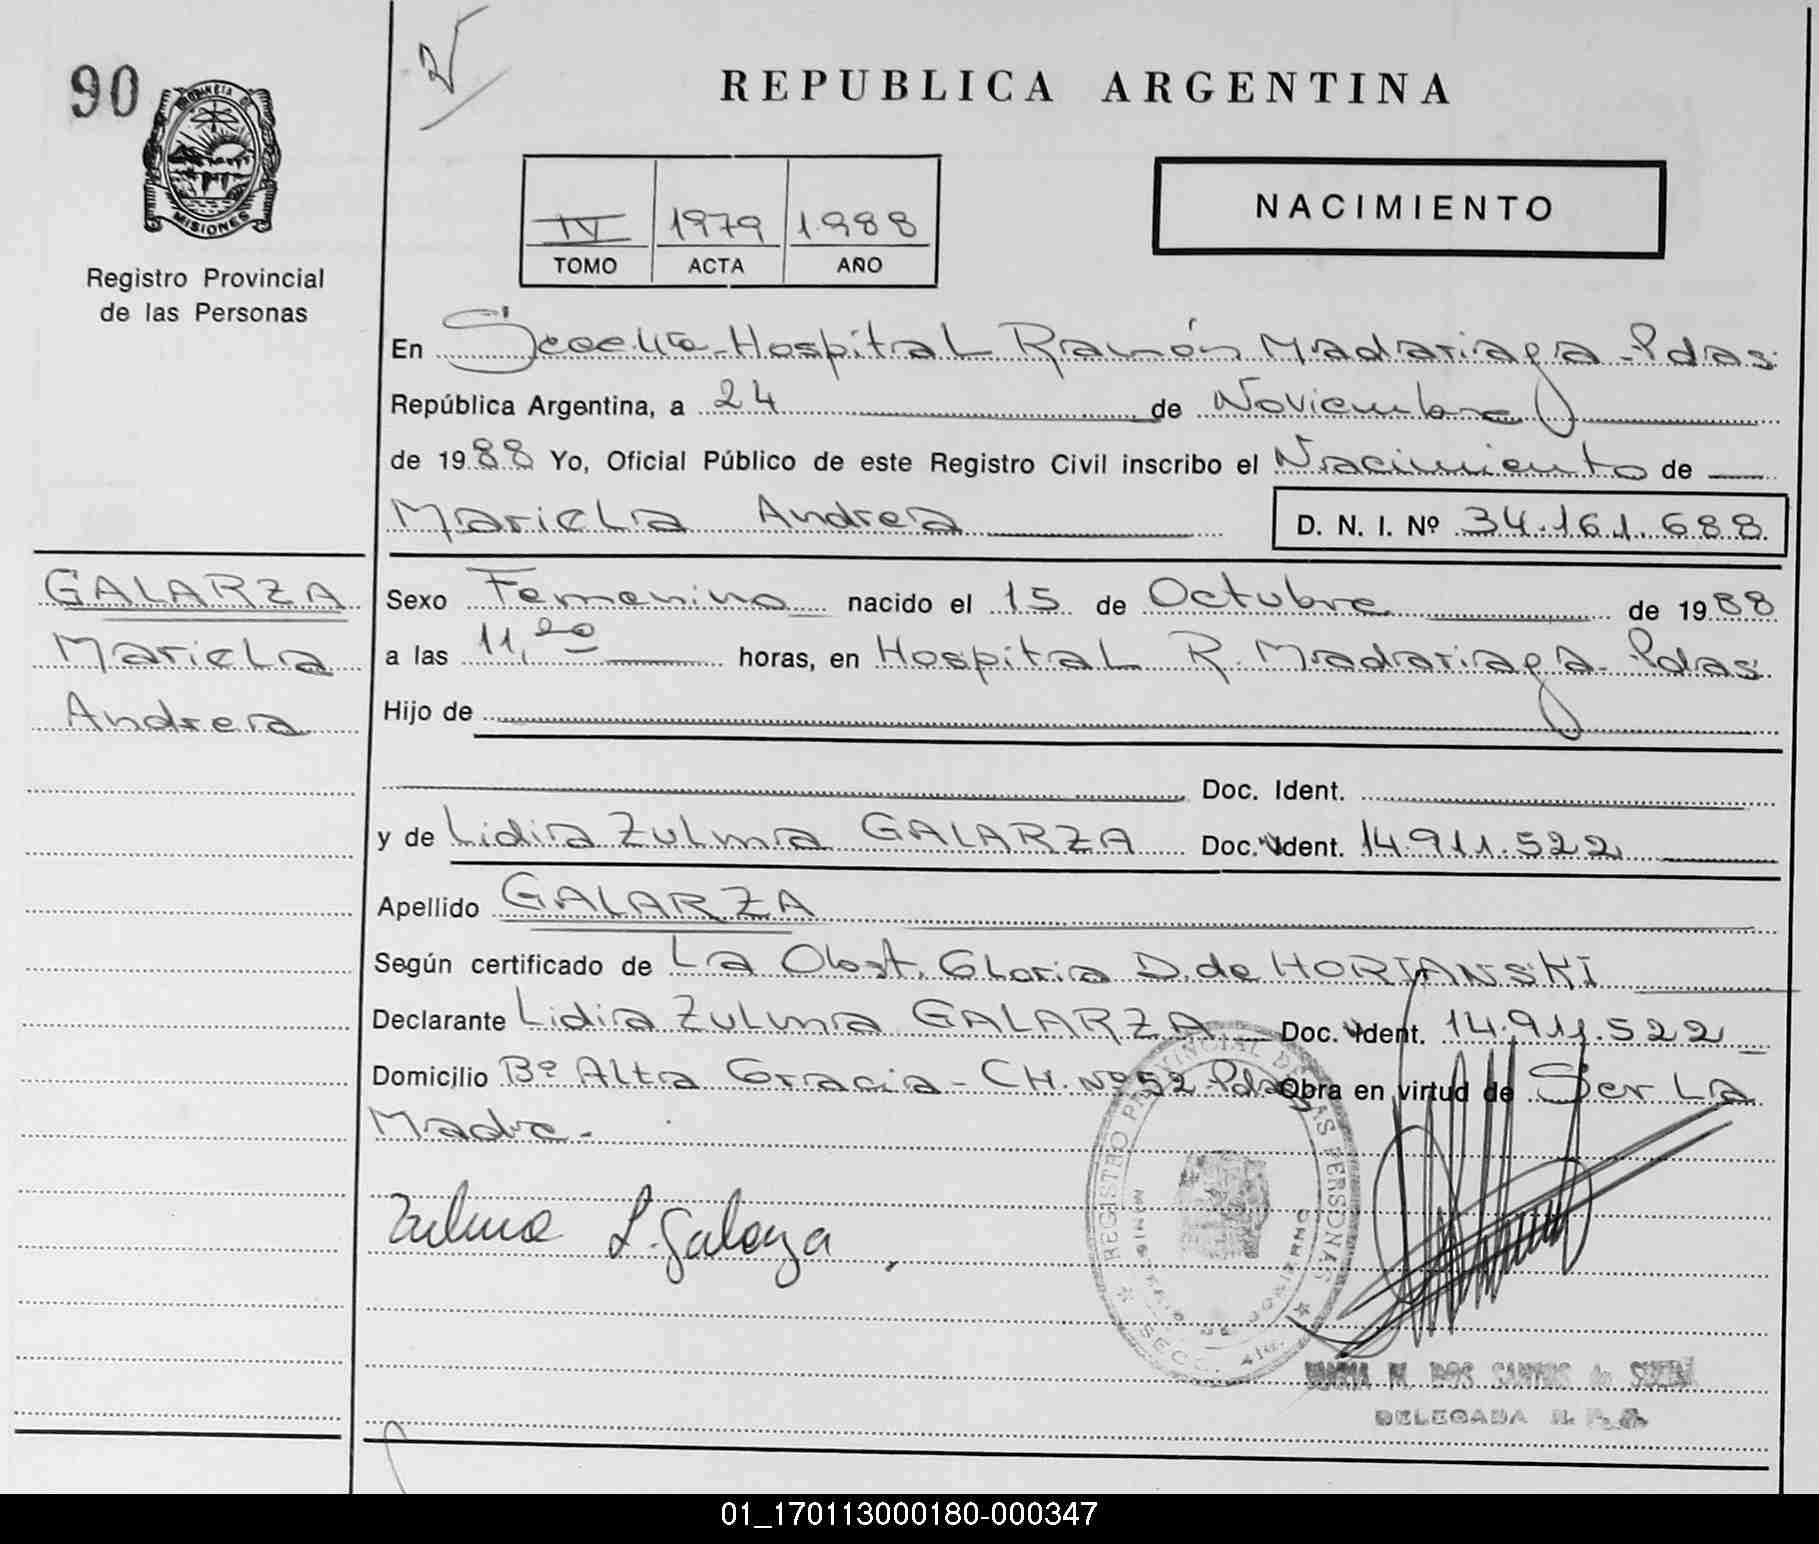 90
PROVINCIA DE
MISIONES
Registro Provincial
de las Personas
REPUBLICA ARGENTINA
NACIMIENTO
IV 1979 1988
TOMO ACTA AÑO
En Hospital Ramón Madariaga - Pdas.
República Argentina, a 24 de Noviembre
de 1988 Yo, Oficial Público de este Registro Civil inscribo el Nacimiento de
Mariela Andrea D. N. I. Nº 34.161.688
GALARZA
Mariela
Andrea
Sexo Femenino nacido el 15 de Octubre de 1988
a las 11,20 horas, en Hospital R. Madariaga - Pdas
Hijo de
Doc. Ident.
y de Lidia Zulma GALARZA Doc. Ident. 14.911.522
Apellido GALARZA
Según certificado de La Obst. Gloria D. de HORIANSKI
Declarante Lidia Zulma GALARZA Doc. Ident. 14.911.522
Domicilio Bº Alta Gracia - CH. Nº 52 Pdas Obra en virtud de Ser La
Madre.-
Zulma L. Galarza
REGISTRO PROVINCIAL DE LAS PERSONAS
MINISTERIO DE GOBIERNO
SECC.
M. DOS SANTOS de
DELEGADA R. P.
01_170113000180-000347